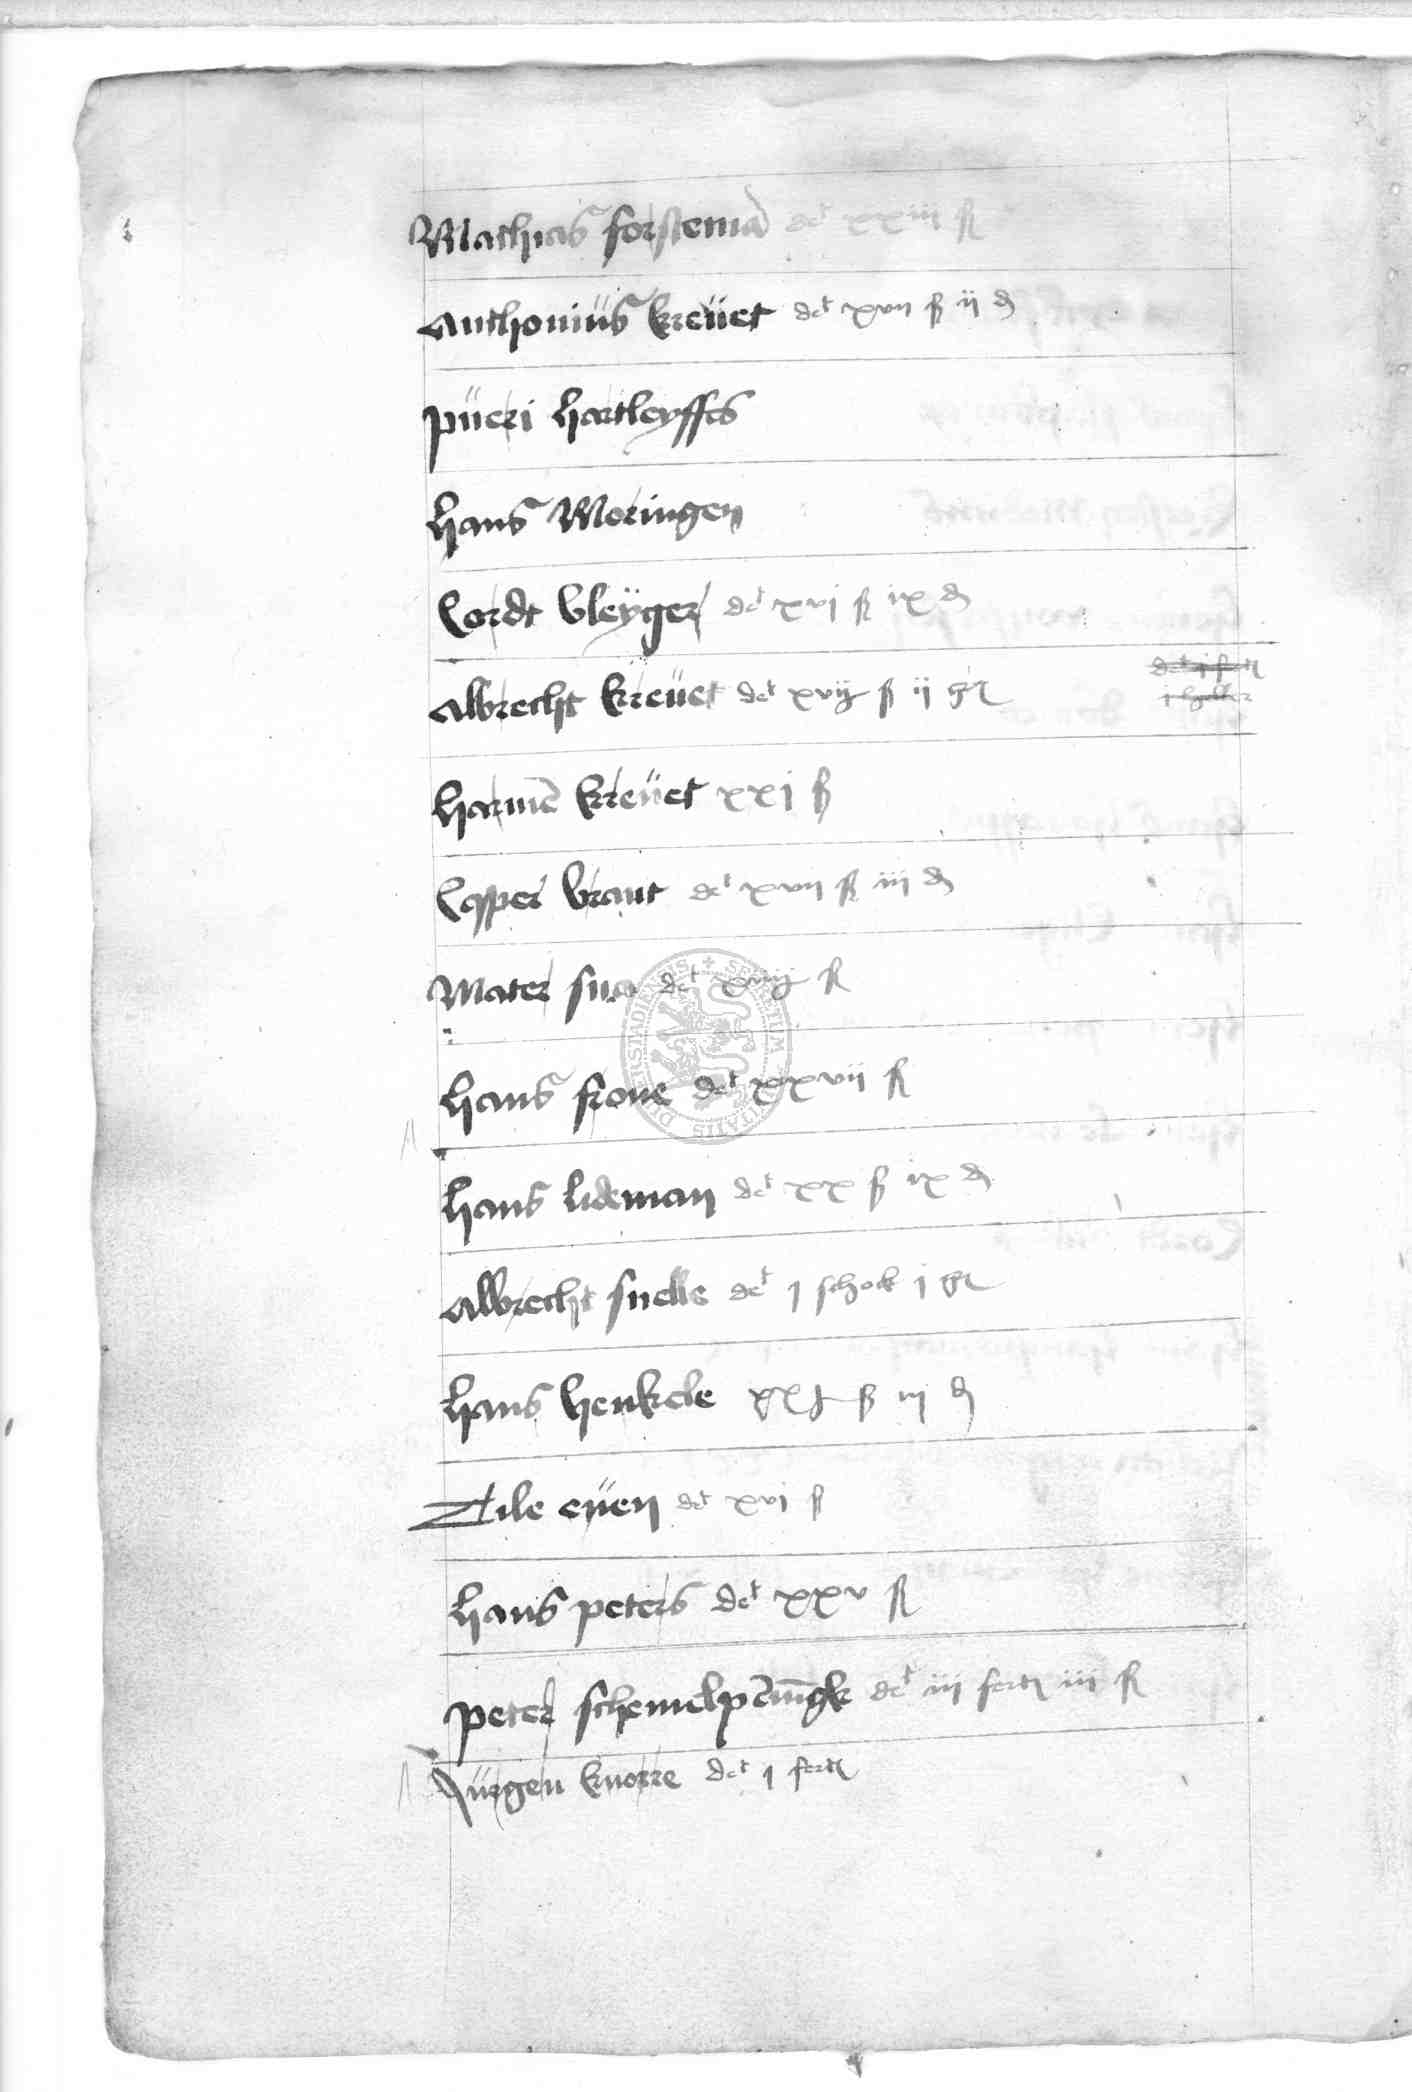 Mathias forstemā det xxiii ß
Anthoniüs kreüet det xvii ß ii δ
püeri hartleyffes
hans Moringen
Cordt bleÿger det xvi ß ix δ
det j fert
Albrecht kreüet det xvij ß ij gr
j heller
harmē kreüet xxj ß
Casper brant det xvii ß iii δ
Mater sua det xviij ß
hans frone det xxvii ß
hans lideman det xx ß ix δ
Albrecht snelle det j schok j gr
hans henkele ß iij δ
Tile eÿen det xvi ß
hans peters det xxv ß
peter schemelpēnīgk det iij fert iii ß
Jürgen knorre det j fert